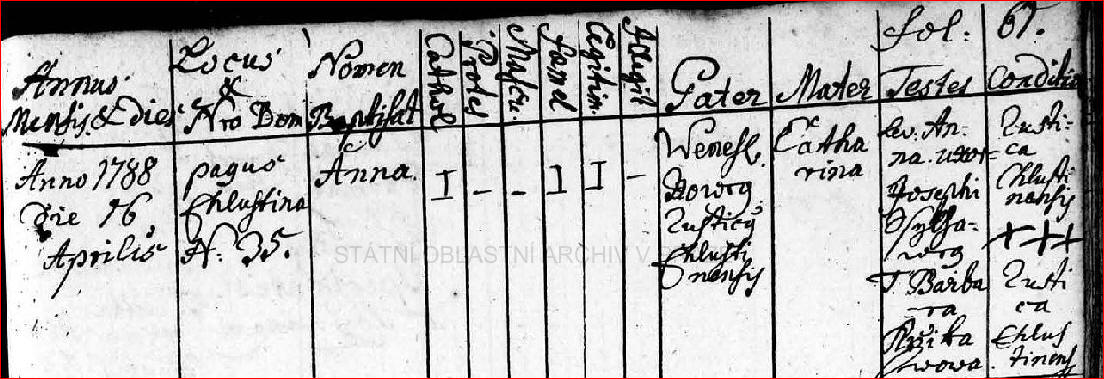 Fol: 65.
Annus
Mensis & dies
Locus
&
Nro Dom
Nomen
Baptisat
Cathol
Protes
Mascu
Foemel
Legitim
Illegit
Pater
Mater
Testes
Conditio
Anno 1788
Die 16
Aprilis
pagus
Chlustina
N. 35.
Anna.
I
-
-
I
I
-
Wenesl.
Rusticq
Chlusti
nensis
Catha
rina
An-
na. uxor
Josephi
T Barba
ra
Rusti-
ca
Chlusti
nensis
+++
Rusti
ca
Chlus
tinens
STÁTNÍ OBLASTNÍ ARCHIV V